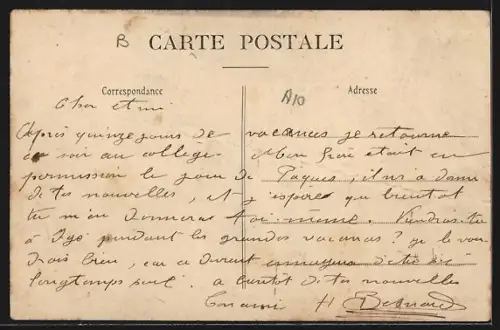 B
CARTE POSTALE
Correspondance
Adresse
A10
Cher Ami
Après quinze jours de vacances je retourne
ce soir au collège. Mon frère était en
permission le jour de Pâques, il m'a donné
de tes nouvelles, et j'espère que bientôt
tu m'en donneras toi-même. Viendras-tu
à Igé pendant les grandes vacances? Je le vou
drais bien, car ce doit ennuyeux d'être si
longtemps seul. A bientôt de tes nouvelles
Ton ami H Besnard